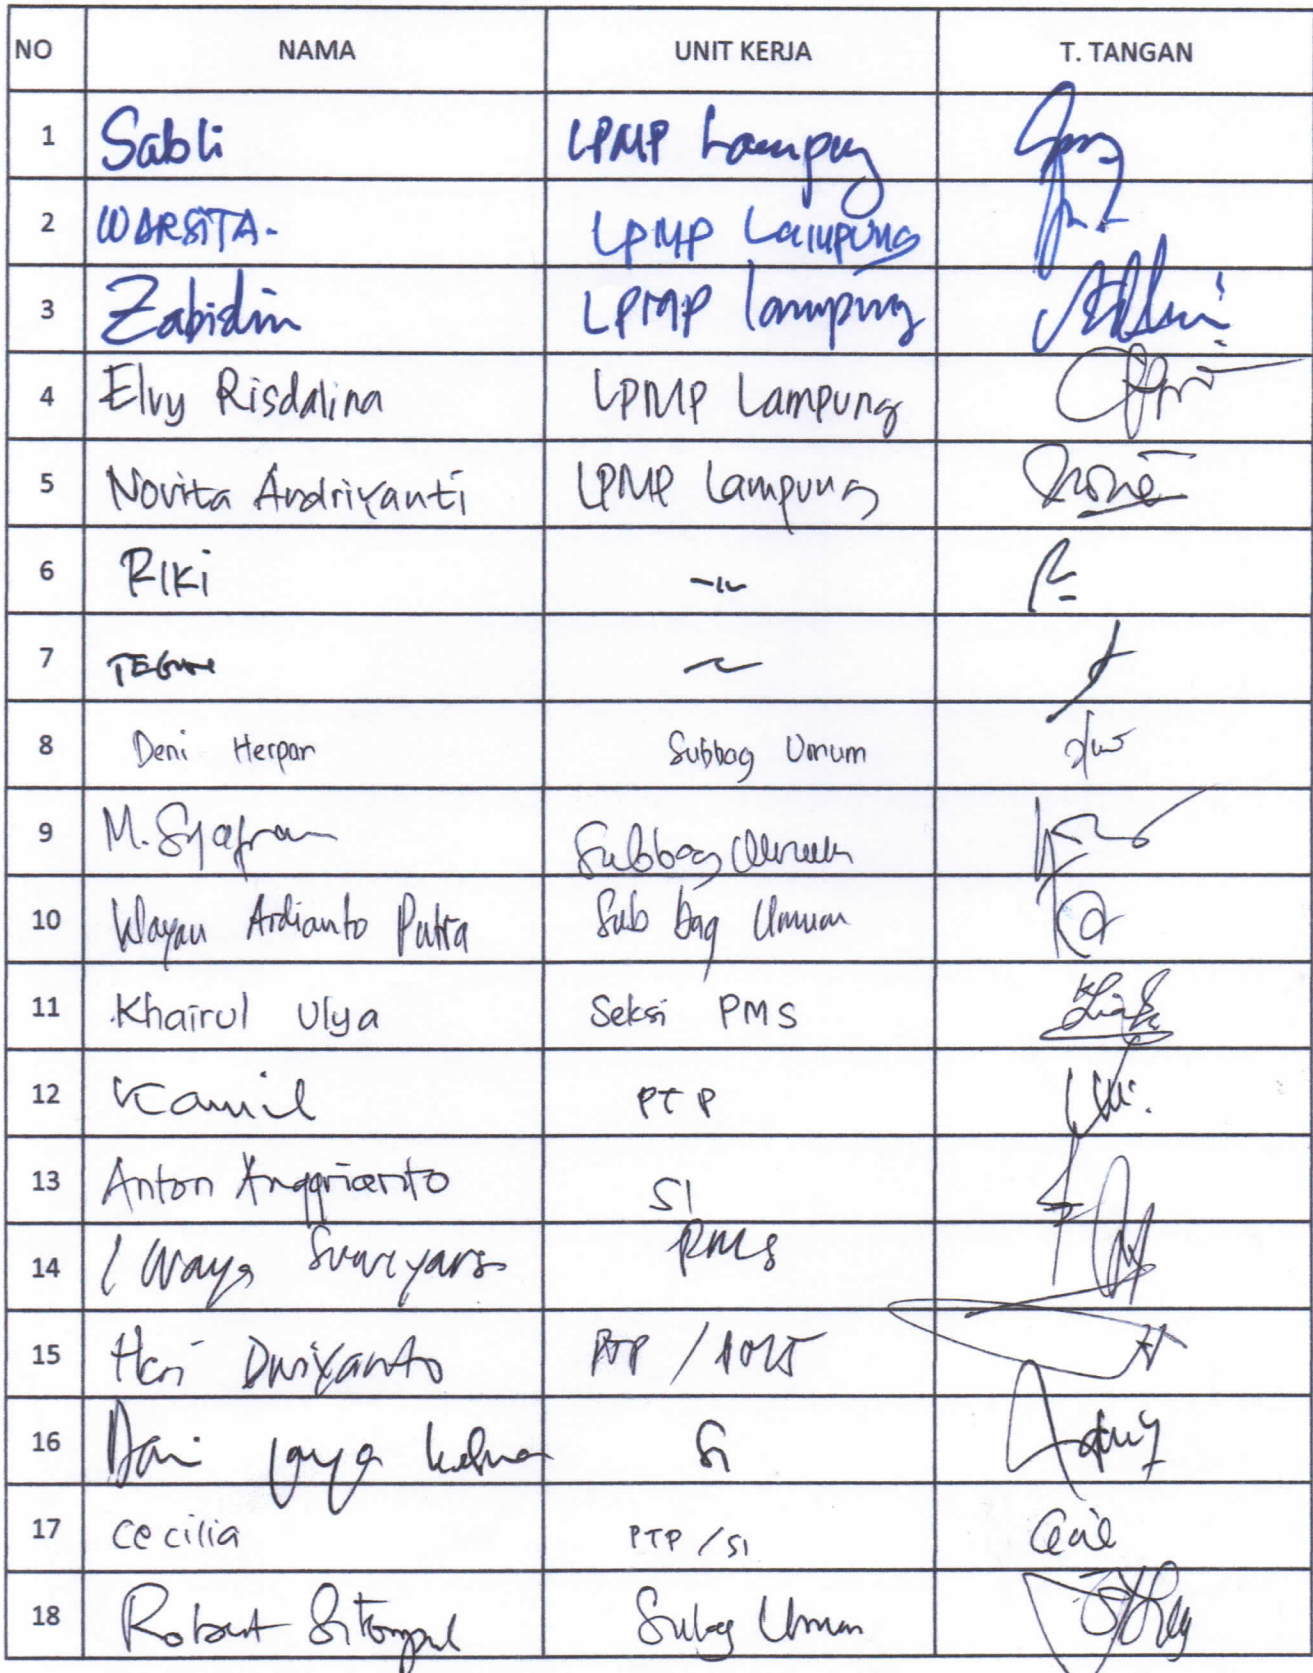 NO NAMA UNIT KERJA T. TANGAN
1 Sabli LPMP Lampung
2 WARSITA. LPMP Lampung
3 Zabidin LPMP lampung
4 Elvy Risdalina LPMP Lampung
5 Novita Andriyanti LPMP Lampung
6 RIKi
7 TEGUH
8 Deni Herpan Subbag Umum
9 M. Syafran Subbag Umum
10 Wayan Ardianto Putra Sub bag Umum
11 Khairul Ulya Seksi PMS
12 Kamil PTP
13 Anton Anggrianto SI
14 I Wayan PMS
15 Heri Dwiyanto PTP /
16 jaya SI
17 Cecilia PTP / SI Cecil
18 Robert Sitompul Subag Umum